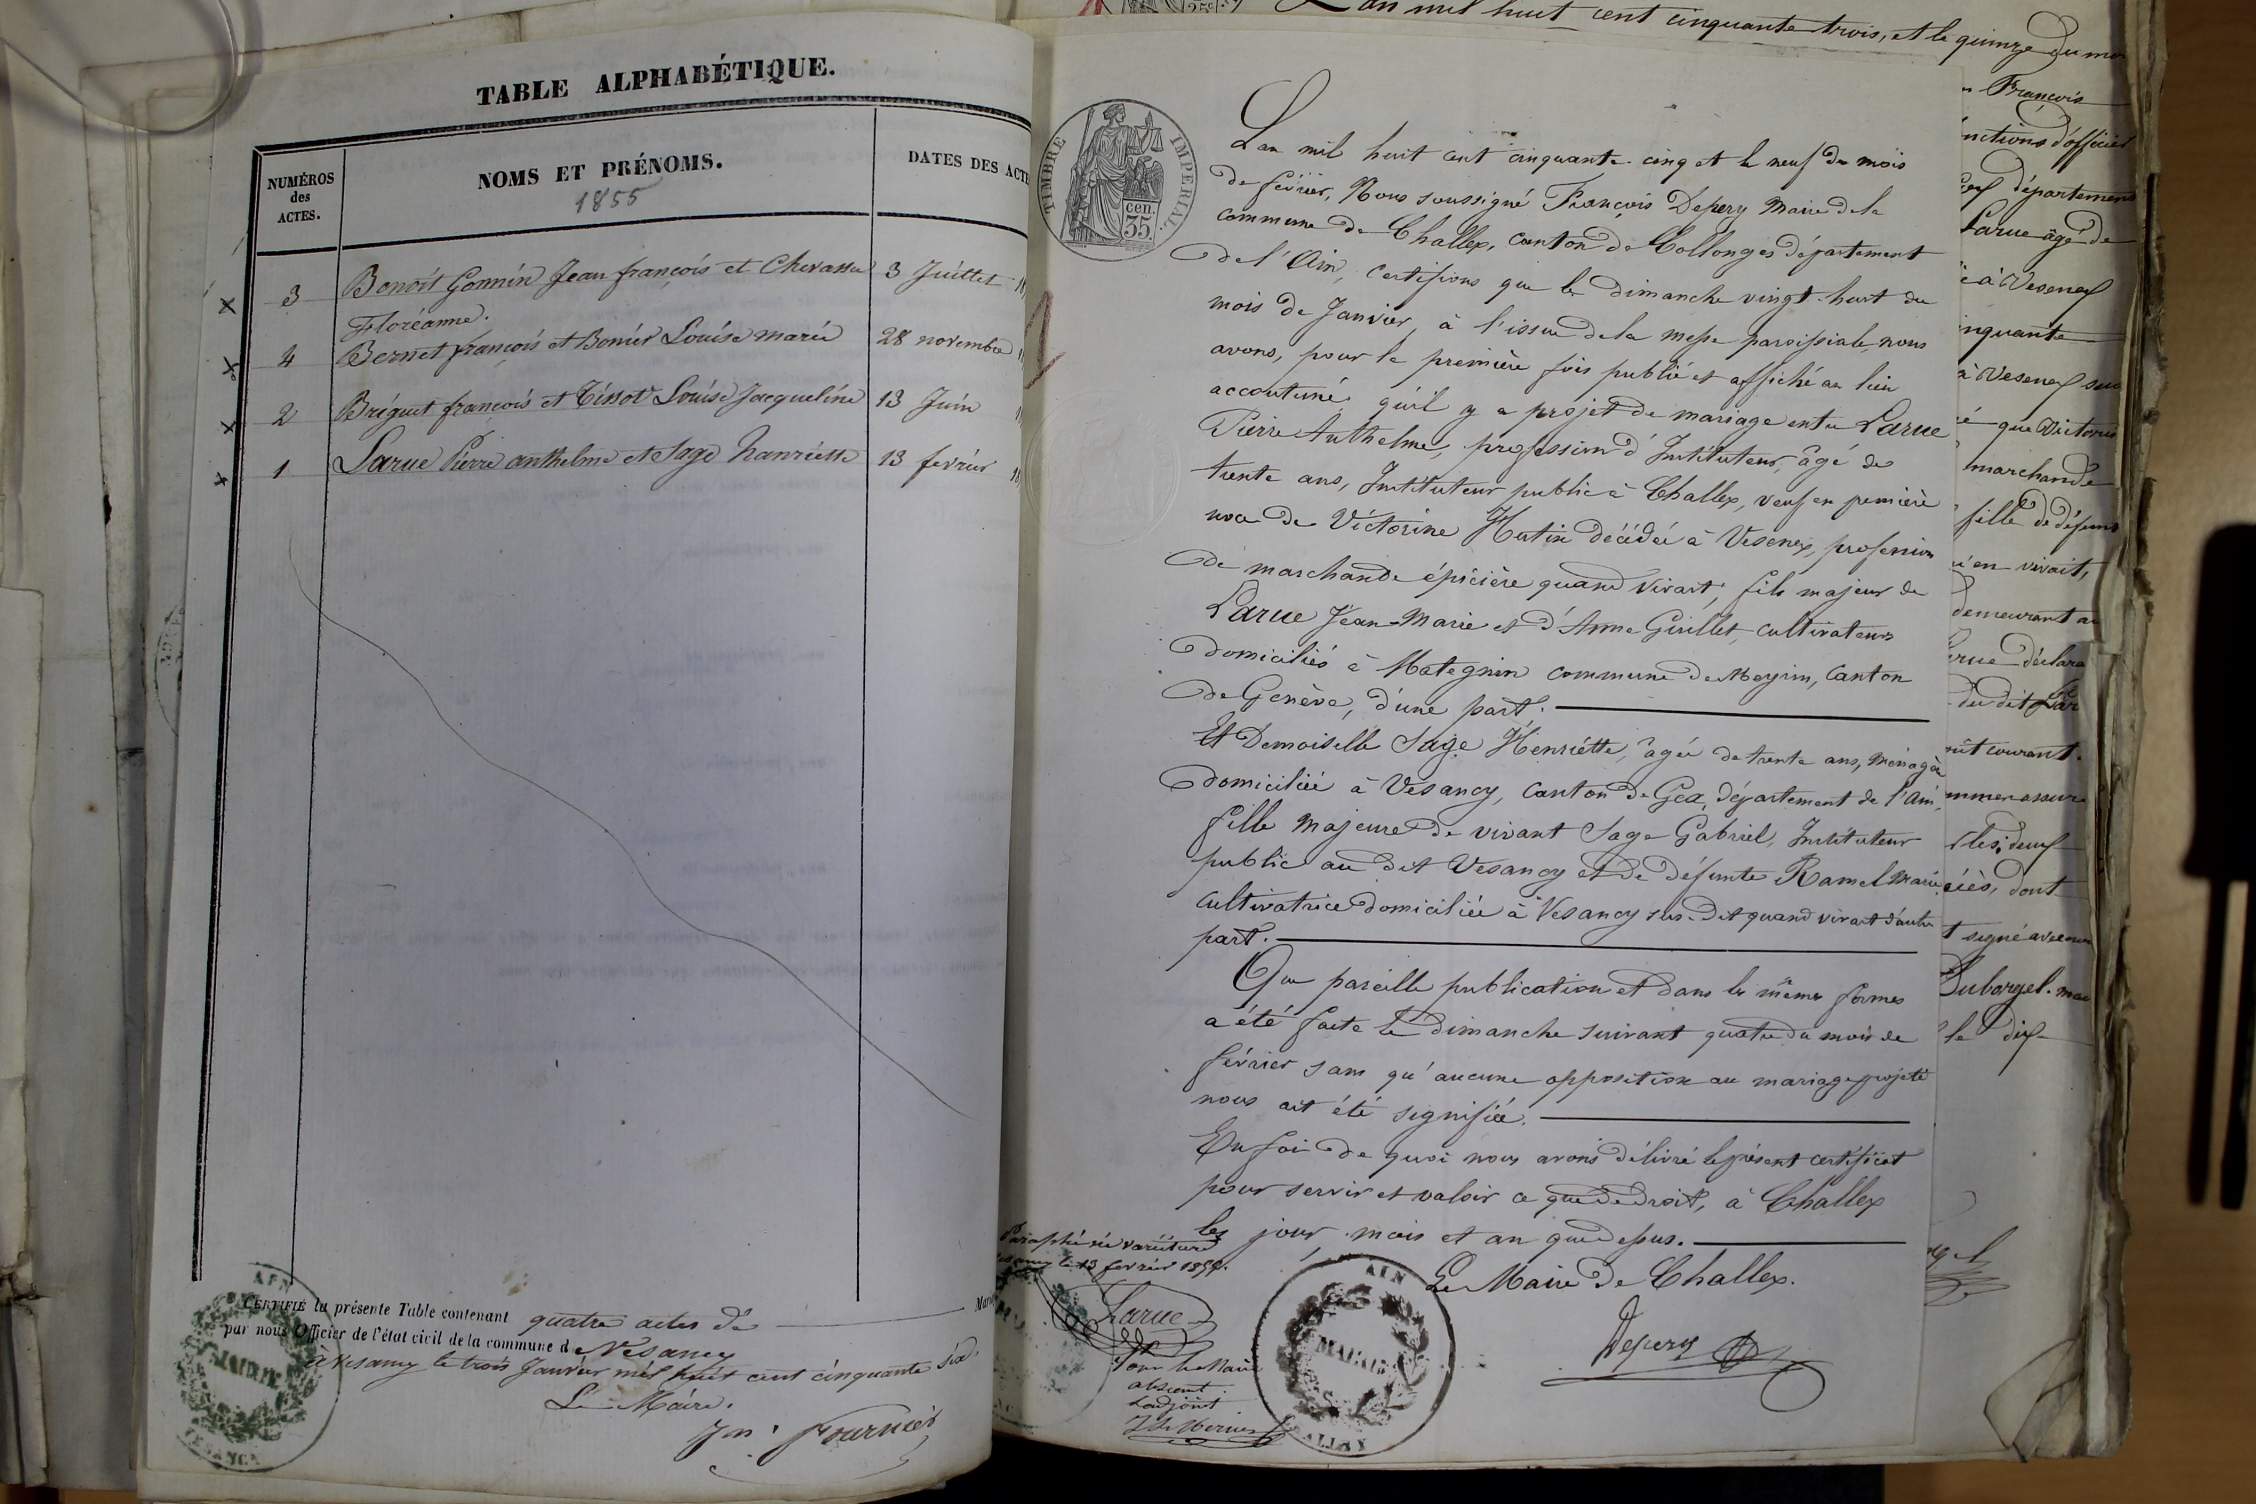 TABLE ALPHABÉTIQUE.
NUMÉROS
des
ACTES.
NOMS ET PRÉNOMS.
1855
DATES DES ACTE
3 Benoît Gonnin Jean françois et Chevassu 3 Juillet
Floréanne.
4 Bernet françois et Bonier Louise marie 28 novembre
2 Briguet françois et Tissot Louise Jacqueline 13 Juin
1 Larue Pierre anthelme et Sage hanriette 13 fevrier
CERTIFIÉ la présente Table contenant quatre actes de
par nous Officier de l'état civil de la commune de Vesancy
à Vesancy le trois Janvier mil huit cent cinquante six
Le Maire.
Fournier
AIN
MAIRIE
TIMBRE IMPERIAL.
cen.
35.
L'an mil huit cent cinquante-cinq et le neuf du mois
de février, Nous soussigné François Dépery Maire de la
commune de Challex, canton de Collonges département
de l'Ain, certifions que le dimanche vingt-huit du
mois de Janvier, à l'issue de la messe paroissiale, nous
avons, pour la première fois publié et affiché au lieu
accoutumé qu'il y a projet de mariage entre Larue
Pierre Anthelme, profession d'Instituteur, âgé de
trente ans, Instituteur public à Challex, veuf en première
noce de Victorine décédée à Vesenex, profession
de marchande épicière quand vivait, fils majeur de
Larue Jean-Marie et d'Anne Girillet, cultivateurs
domiciliés à Mategnin commune de Meyrin, Canton
de Genève, d'une part.
Et Demoiselle Sage Henriette, âgée de trente ans, ménagère
domiciliée à Vesancy, Canton de Gex, département de l'Ain,
fille majeure de vivant Sage Gabriel, Instituteur
public au dit Vesancy et de défunte Ramel Marie
cultivatrice domiciliée à Vesancy sus-dit quand vivait d'autre
part.
Que pareille publication et dans les mêmes formes
a été faite le dimanche suivant quatre du mois de
février sans qu'aucune opposition au mariage projeté
nous ait été signifiée.
En foi de quoi nous avons délivré le présent certificat
pour servir et valoir ce que de droit, à Challex
les jour, mois et an que dessus.
Le Maire de Challex.
Depery
Paraphé ne varietur
le 13 fevrier 1855.
Larue
Pour le Maire
absent
Ladjoint
AIN
MAIRIE
CHALLEX
L'an mil huit cent cinquante trois, et le quinze du mo
François
d'officier
département
Larue âgé de
à Vesenex
à Vesenex
que Victorine
marchande
fille de défunt
vivait,
demeurant au
déclara
du dit
courant.
deux
dont
signé avec
Duborgel. mai
le dix